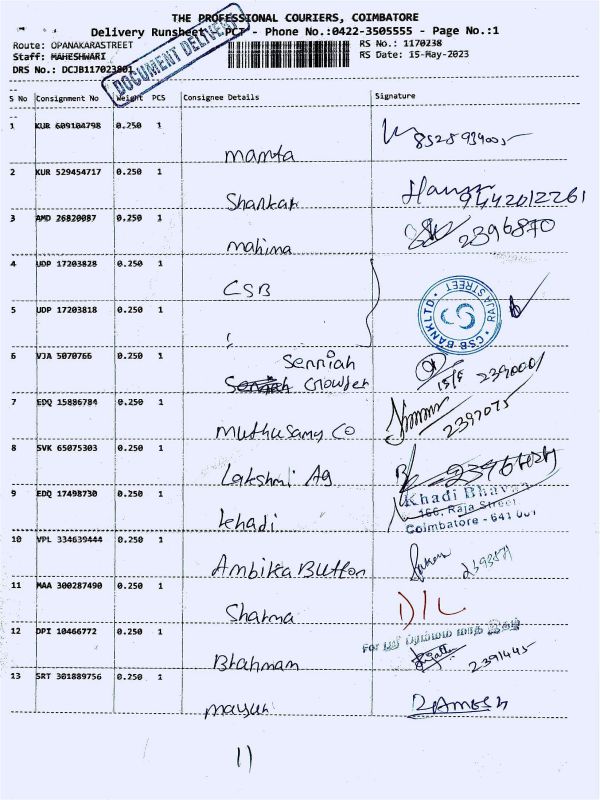 THE PROFESSIONAL COURIERS, COIMBATORE
Delivery Runsheet - PCT - Phone No.:0422-3505555 - Page No.:1
Route: OPANAKARASTREET
RS No.: 1170238
Staff: MAHESHWARI
RS Date: 15-May-2023
DRS No.: DCJB117023801
DOCUMENT DELIVERY
S No Consignment No Weight PCS Consignee Details Signature
1 KUR 609104798 0.250 1
Mamta
2 KUR 529454717 0.250 1
Shankar 9442012261
3 AMD 26820087 0.250 1
mahima 2396870
4 UDP 17203828 0.250 1
CSB
CSB BANK LTD. RAJA STREET
5 UDP 17203818 0.250 1
6 VJA 5070766 0.250 1
Senniah
Crowder 15/5 2390001
7 EDQ 15886784 0.250 1
Muthusamy Co 2397075
8 SVK 65075303 0.250 1
Lakshmi Ag
9 EDQ 17498730 0.250 1
Khadi
Khadi Bhavan
166, Raja Street
Coimbatore - 641 001
10 VPL 334639444 0.250 1
Ambika Button
11 MAA 300287490 0.250 1
Sharma D/L
12 DPI 10466772 0.250 1
For ஸ்ரீ
Brahman 2391445
13 SRT 301889756 0.250 1
Mayuri RAMESH
11